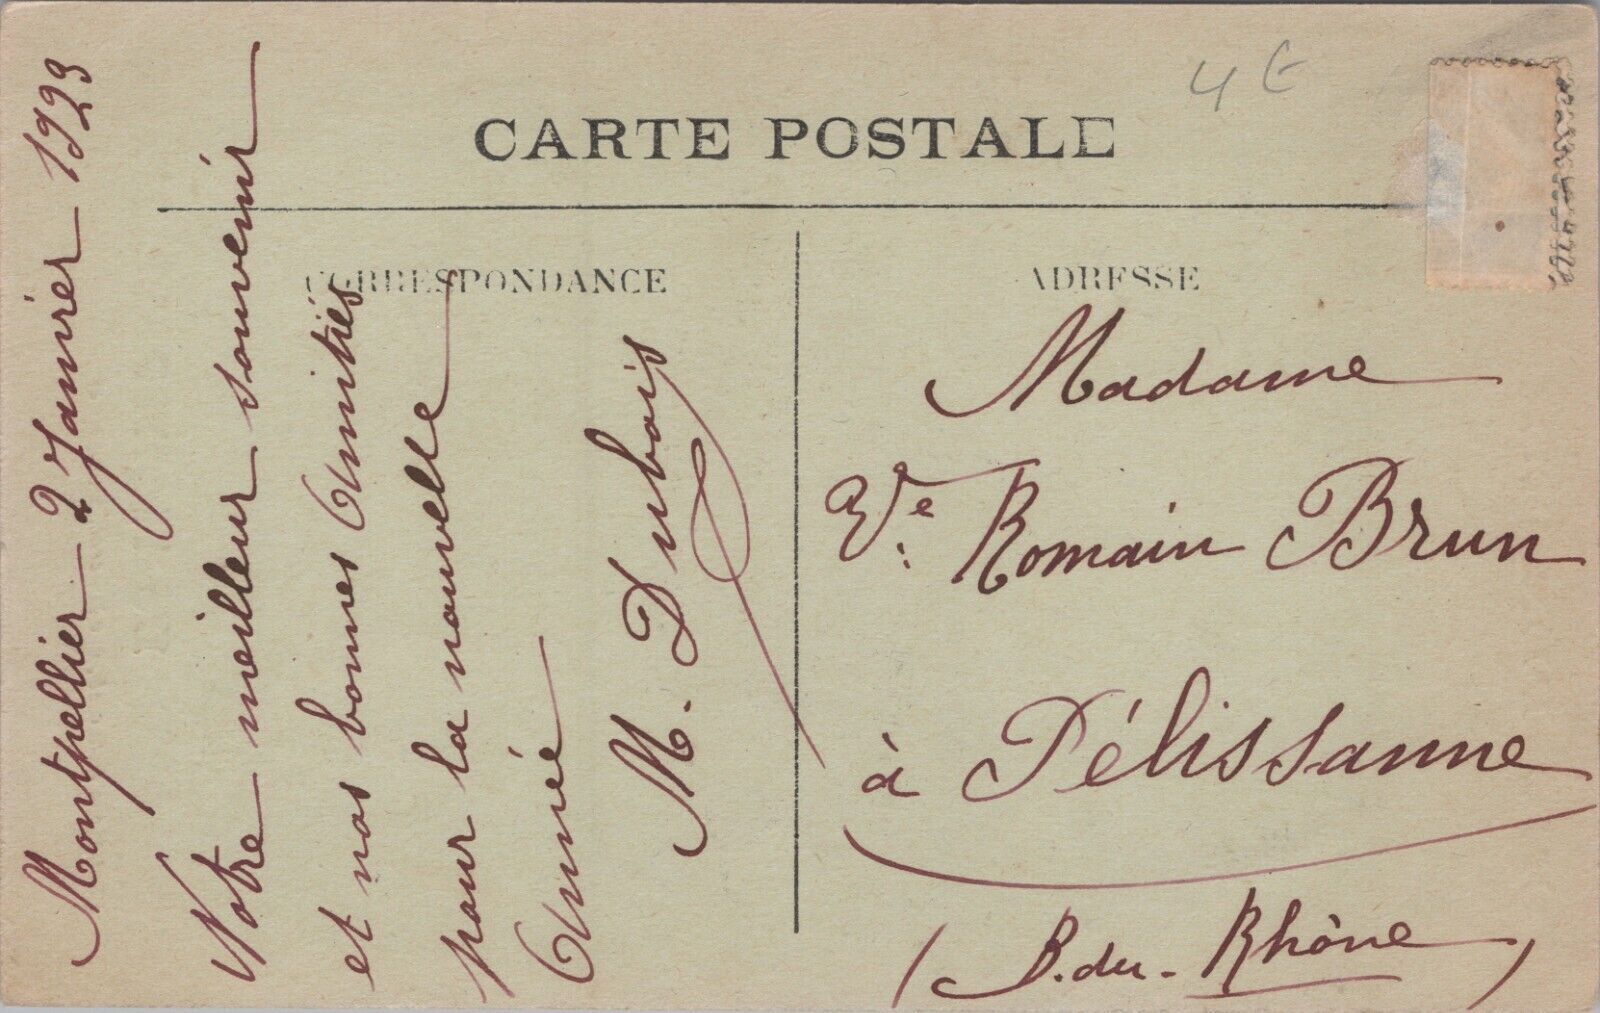 4 €
CARTE POSTALE
CORRESPONDANCE
ADRESSE
Montpellier 2 Janvier 1923
Notre meilleur souvenir
et nos bonnes Amitiés
pour la nouvelle
Année
M. Dubois
Madame
Vve Romain Brun
à Pélissanne
(B.du-Rhône)